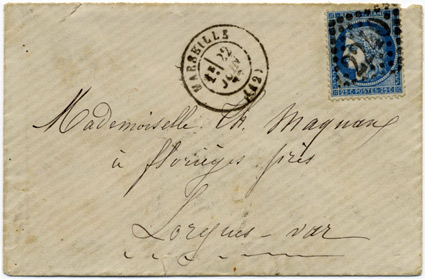 MARSEILLE
22
JUIN
(12)
25 C. POSTES 25 C.
Mademoiselle Th. Magnan
à florièges près
Lorgues - var